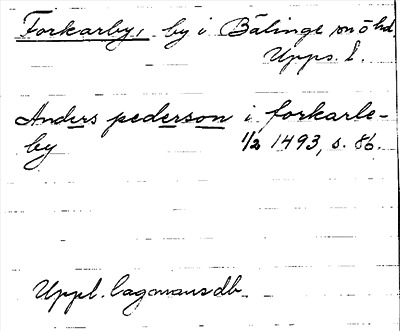 Forkarby, by i Bälinge sn ö hd.
Upps. l.
Anders pederson i forkarle-
by 1/2 1493, s. 86.
Uppl. lagmansdb.